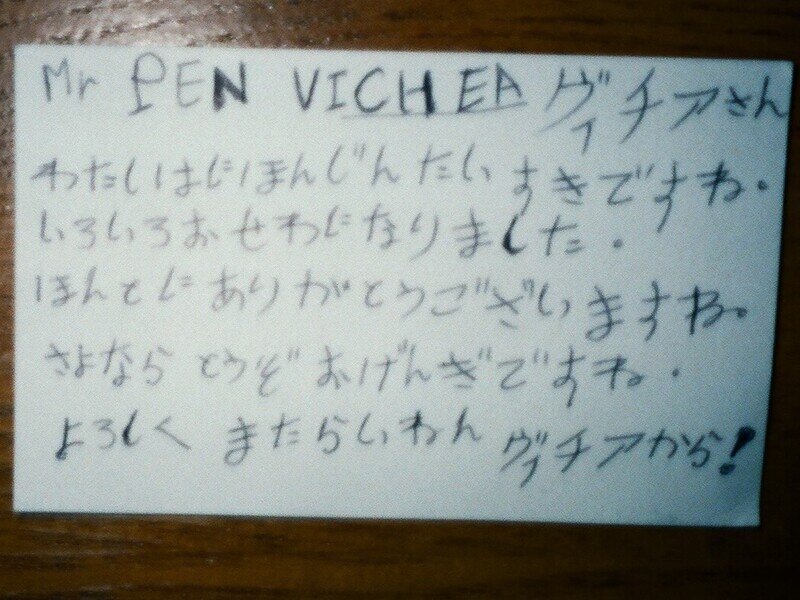 Mr PEN VICHEA ヴィチアさん
わたしはにほんじんたいすきですね.
いろいろおせわになりました.
ほんとにありがとうございますね.
さよなら とうぞ おげんぎですね.
よろしく またらいねん ヴィチアから!